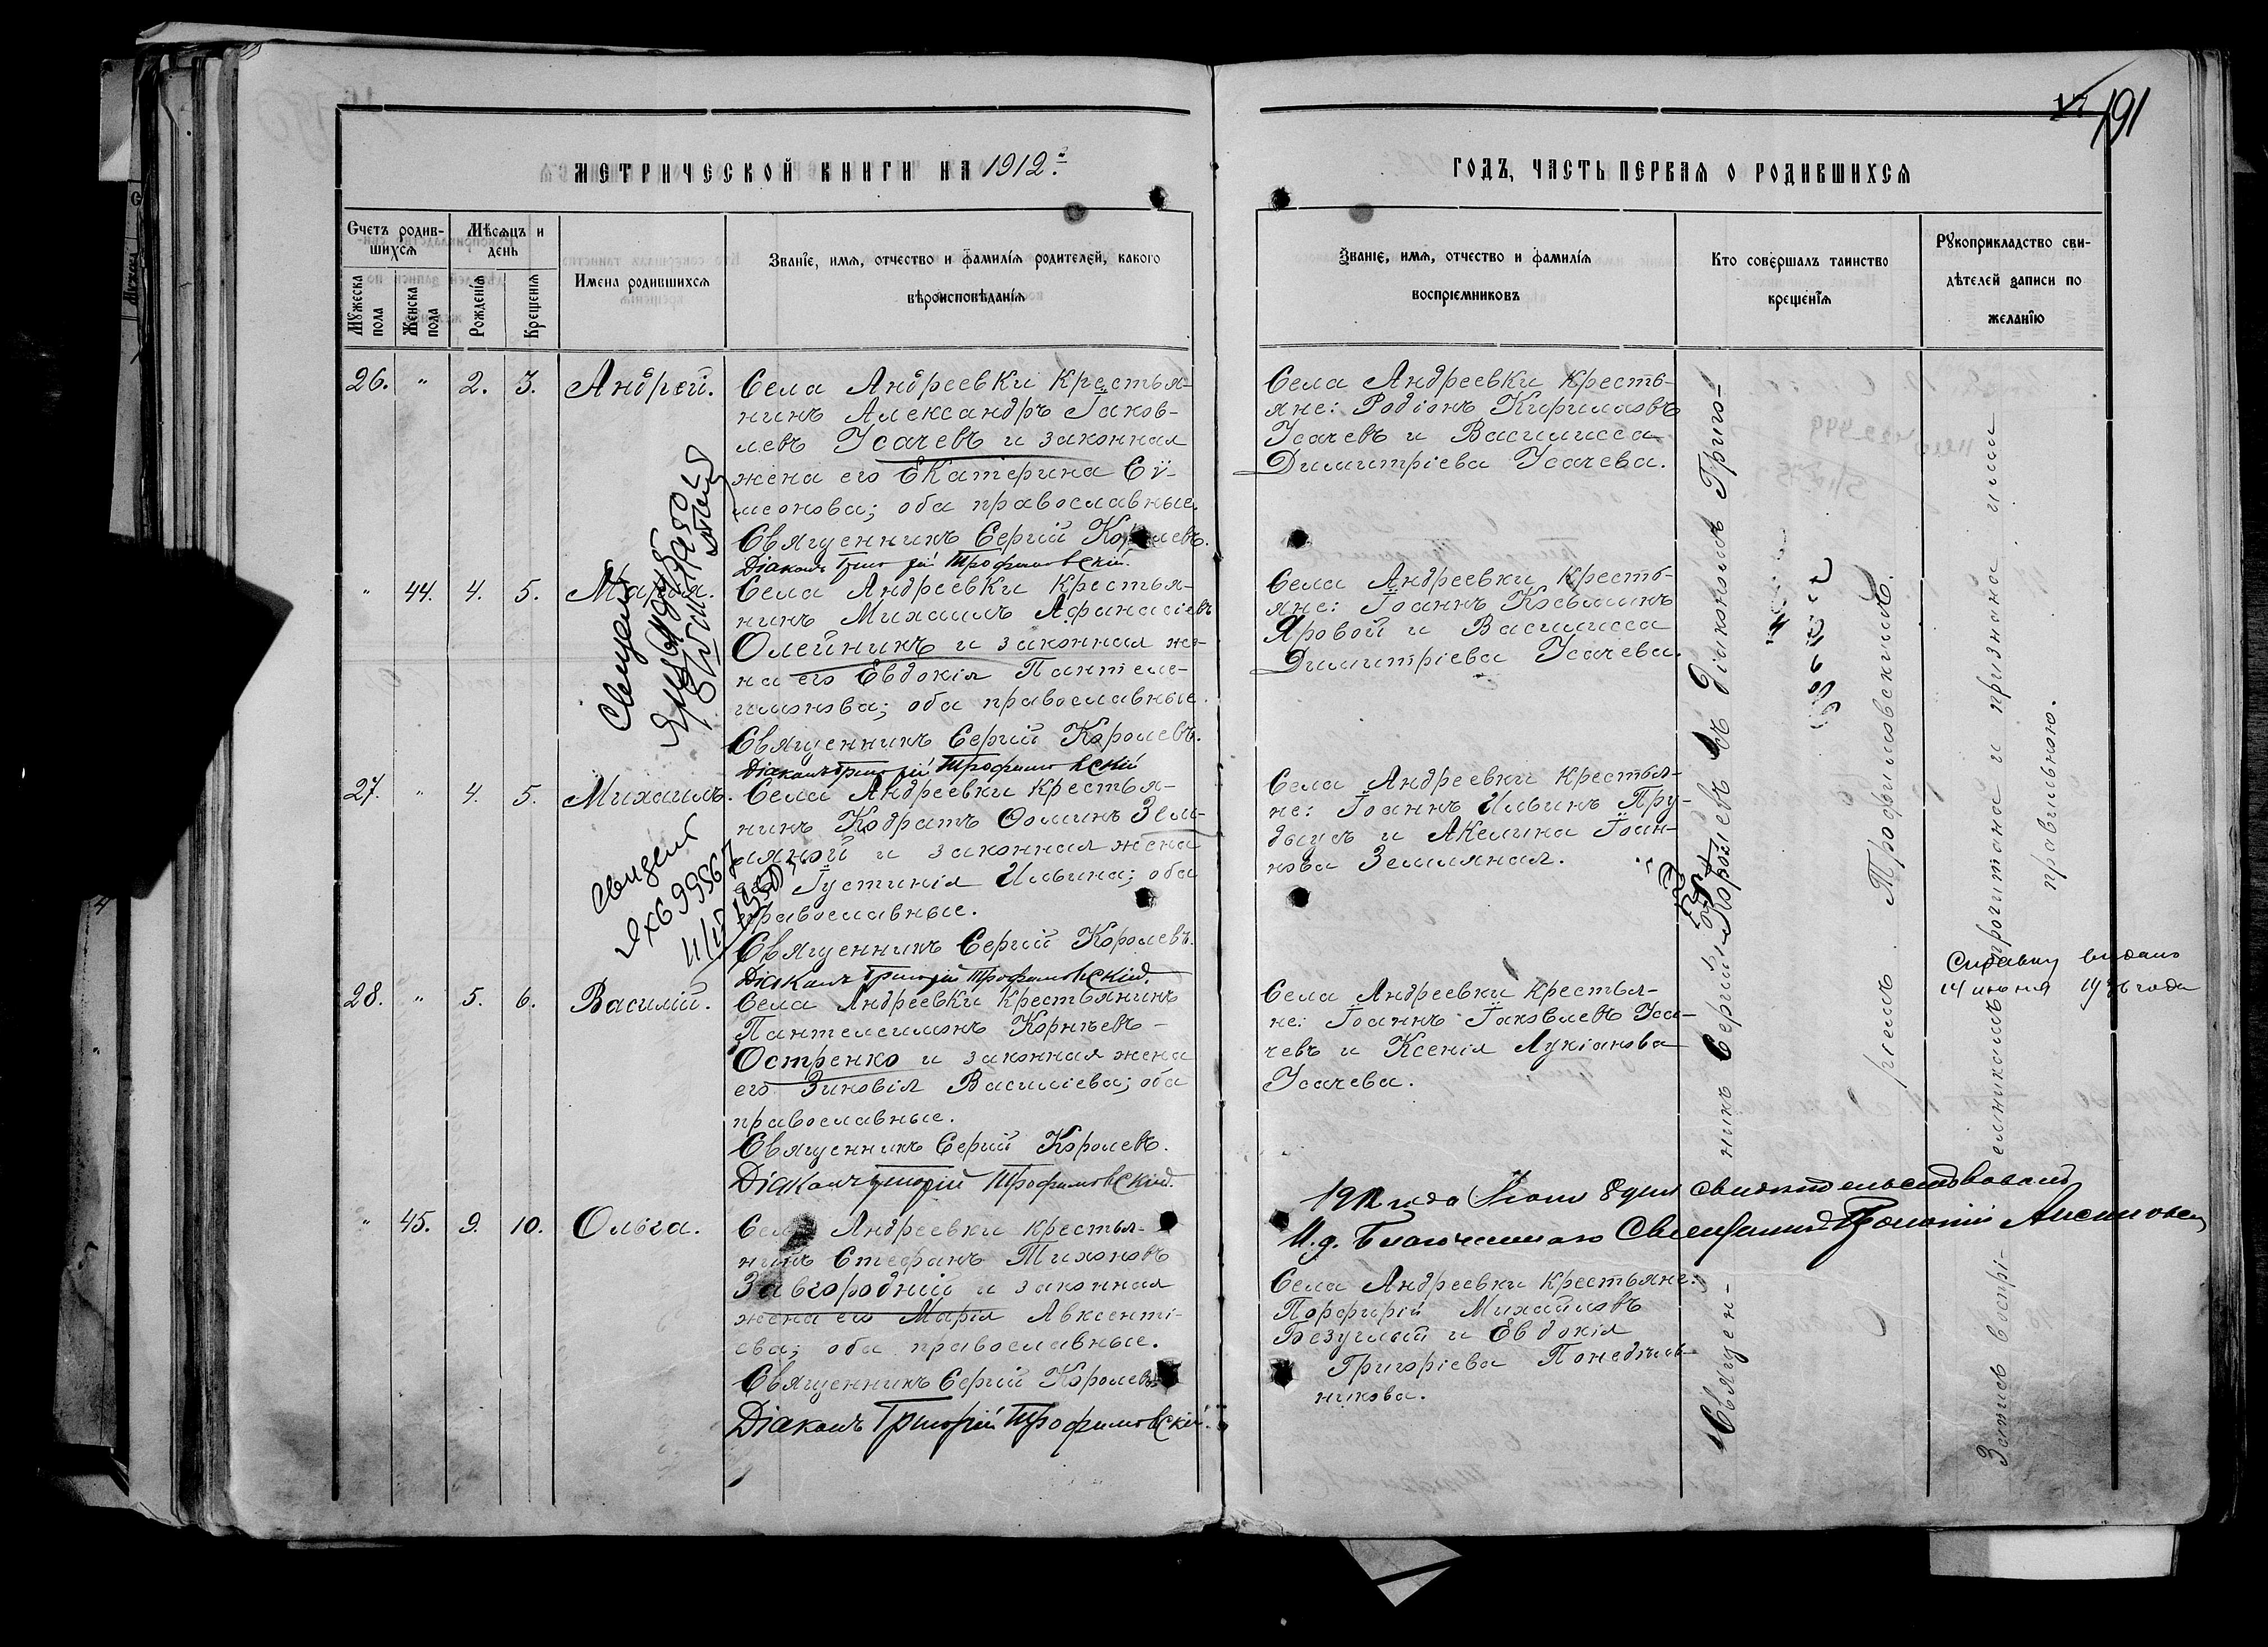 191
МЕТРИЧЕСКОЙ КНИГИ НА 1912 г.
ГОДЪ, ЧАСТЬ ПЕРВАЯ О РОДИВШИХСЯ
Счетъ родив-
шихся
Мужеска пола
Женска пола
Мѣсяцъ и
день
Рожденія
Крещенія
Имена родившихся
Званіе, имя, отчество и фамилія родителей, какого
вѣроисповѣданія
Званіе, имя, отчество и фамилія
воспріемниковъ
Кто совершалъ таинство
крещенія
Рукоприкладство сви-
дѣтелей записи по
желанію
26. " 2. 3. Андрей.
Села Андреевки крестья-
нинъ Александръ Іаков-
левъ Усачевъ и законная
жена его Екатерина Сѵ-
меонова; оба православные.
Священникъ Сергій Королевъ.
Діаконъ Григорій Трофимовскій.
Села Андреевки кресть-
яне: Родіонъ Кириловъ
Усачевъ и Василисса
Димитріева Усачева.
" 44. 4. 5. Марѳа.
Села Андреевки крестья-
нинъ Михаилъ Аѳанасіевъ
Олейникъ и законная же-
на его Евдокія Пантеле-
имонова; оба православные.
Священникъ Сергій Королевъ.
Діаконъ Григорій Трофимовскій
Села Андреевки кресть-
яне: Іоаннъ Косьминъ
Яровой и Василисса
Димитріева Усачева.
27. " 4. 5. Михаилъ.
Села Андреевки крестья-
нинъ Кодратъ Ѳоминъ Зем-
ляной и законная жена
его Іустинія Ильина; оба
православные.
Священникъ Сергій Королевъ.
Діаконъ Григорій Трофимовскій.
Села Андреевки крестья-
не: Іоаннъ Ильинъ Пру-
дыусъ и Акелина Іоан-
нова Земляная.
28. " 5. 6. Василій.
Села Андреевки крестьянинъ
Пантелеимонъ Корнѣевъ
Остренко и законная жена
его Зиновія Василіева; оба
православные.
Священникъ Сергій Королевъ.
Діаконъ Григорій Трофимовскій.
Села Андреевки крестья-
не: Іоаннъ Іаковлевъ Уса-
чевъ и Ксенія Лукіанова
Усачева.
" 45. 9. 10. Ольга.
Села Андреевки крестья-
нинъ Стефанъ Тихоновъ
Завгородній и законная
жена его Марія Авксенті-
ева; оба православные.
Священникъ Сергій Королевъ
Діаконъ Григорій Трофимовскій.
1912 года 8 дня свидѣтельствовалъ
И.д. Благочиннаго Священникъ
Села Андреевки крестьяне:
Порфирій Михайловъ
Безуглый и Евдокія
Григоріева Понедѣль-
никова.
Священ-
никъ Сергій Королевъ съ діакономъ Григо-
ріемъ Трофимовскимъ.
Запись воспрі-
емникамъ прочитана и признана ими
правильною.
Справку выдано
14 июня года